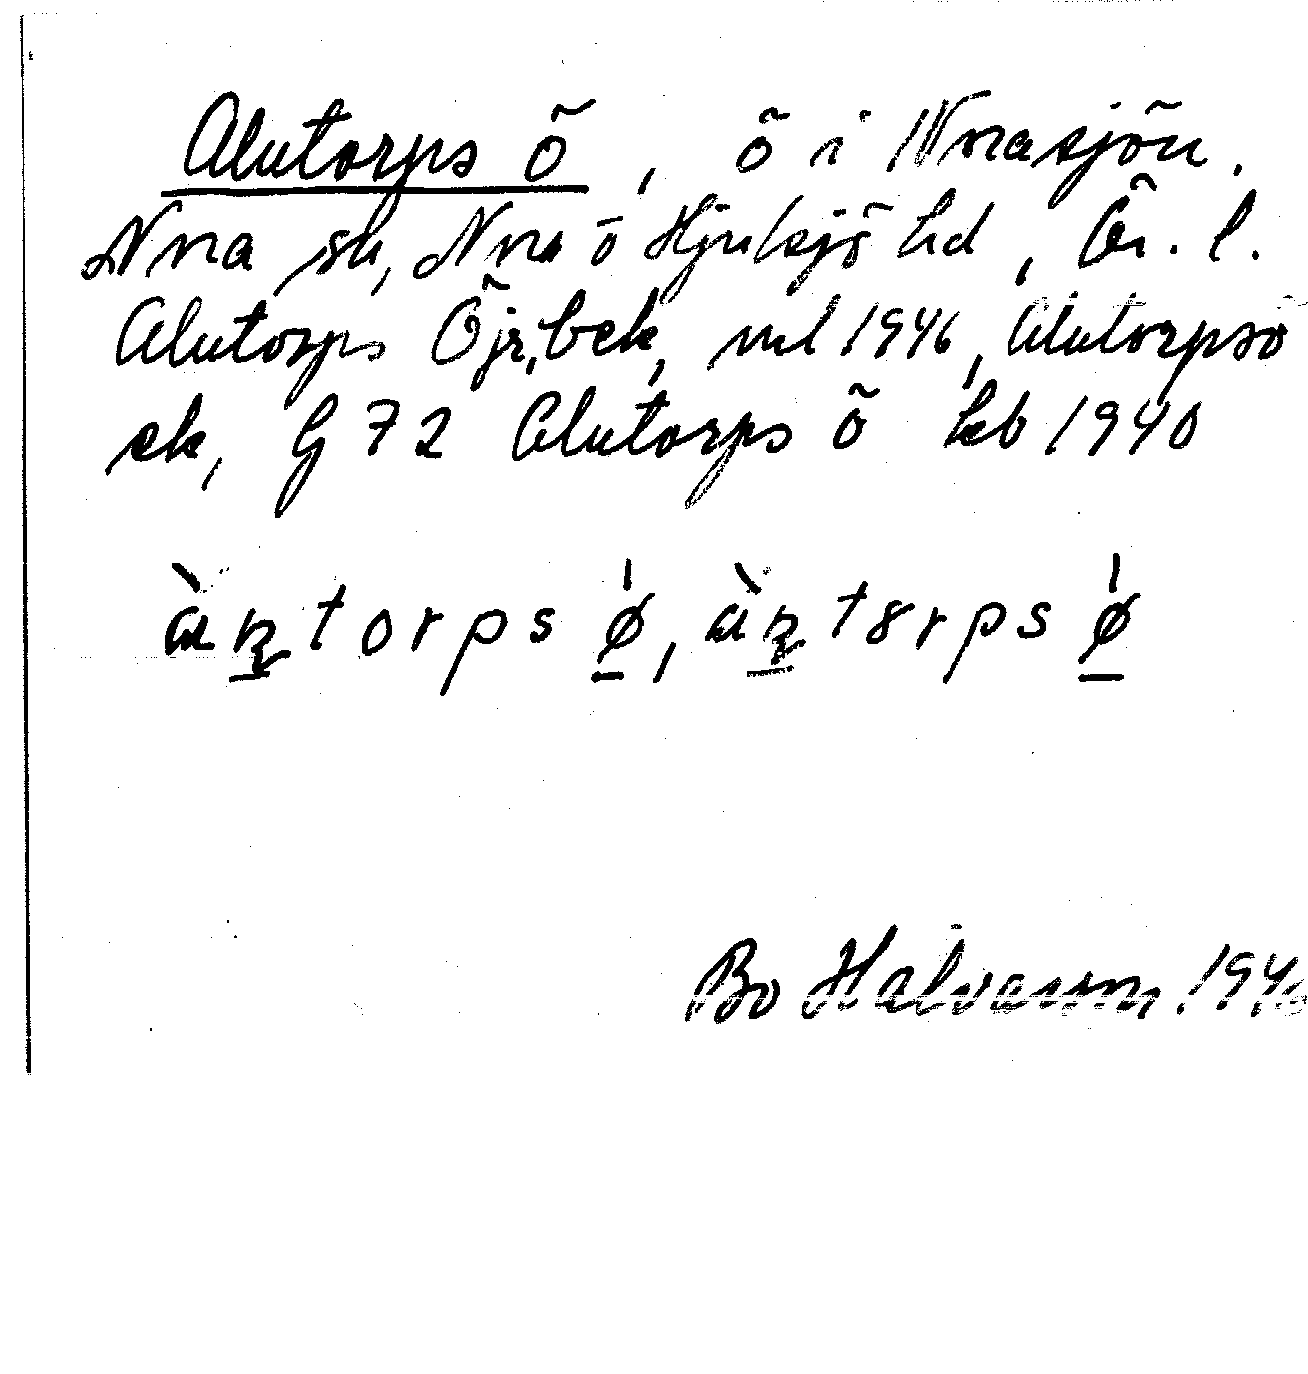 Alntorps ö, ö i Norasjön.
Nora sn, Nora o Hjulsjö hd, Ör. l.
Alntorps Öjr, bek, ml 1946, Alntorpsö
ek, G 72 Alntorps ö kb 1940
àɳtorps ø, àɳt8rps ø
Bo Halvarson 1946